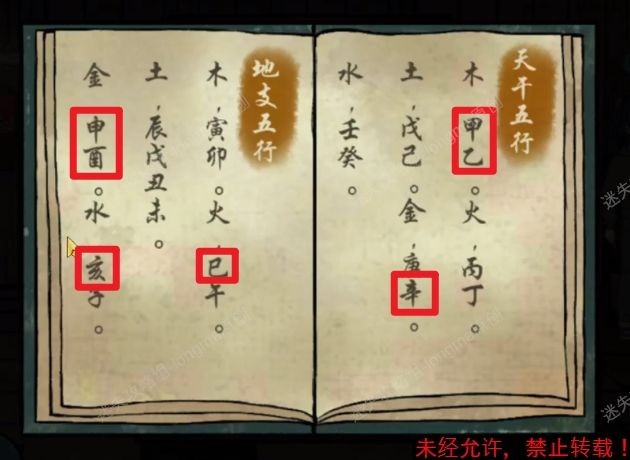 天干五行
木，甲乙。火，丙丁。
土，戊己。金，庚辛。
水，壬癸。
地支五行
木，寅卯。火，巳午。
土，辰戌丑未。
金，申酉。水，亥子。
迷失
迷失
未经允许，禁止转载！